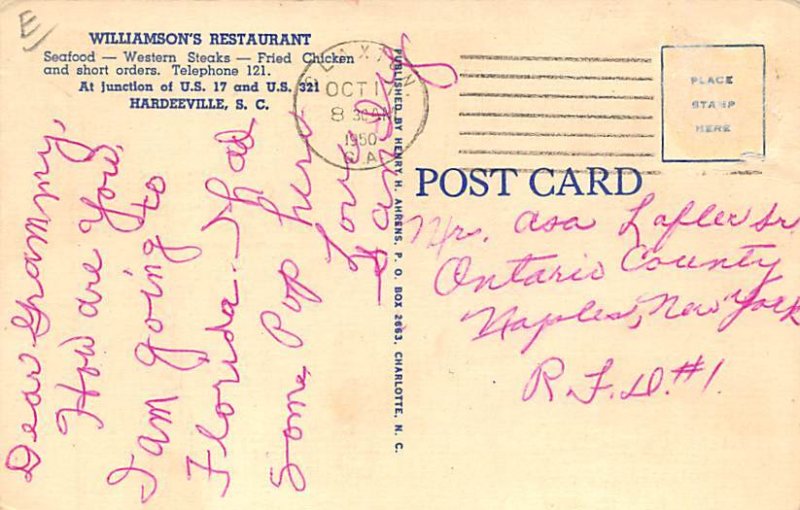 E
WILLIAMSON'S RESTAURANT
Seafood — Western Steaks — Fried Chicken
and short orders. Telephone 121.
At junction of U.S. 17 and U.S. 321
HARDEEVILLE, S. C.
OCT 17
8 30 AM
1950
Dear Grammy,
How are You,
I am going to
Florida. I had
Some Pop here
Love
PUBLISHED BY HENRY H. AHRENS, P. O. BOX 2663, CHARLOTTE, N. C.
PLACE
STAMP
HERE
POST CARD
Mr. Asa Lafler Sr
Ontario County
Naples, New York
R.F.D. #1.